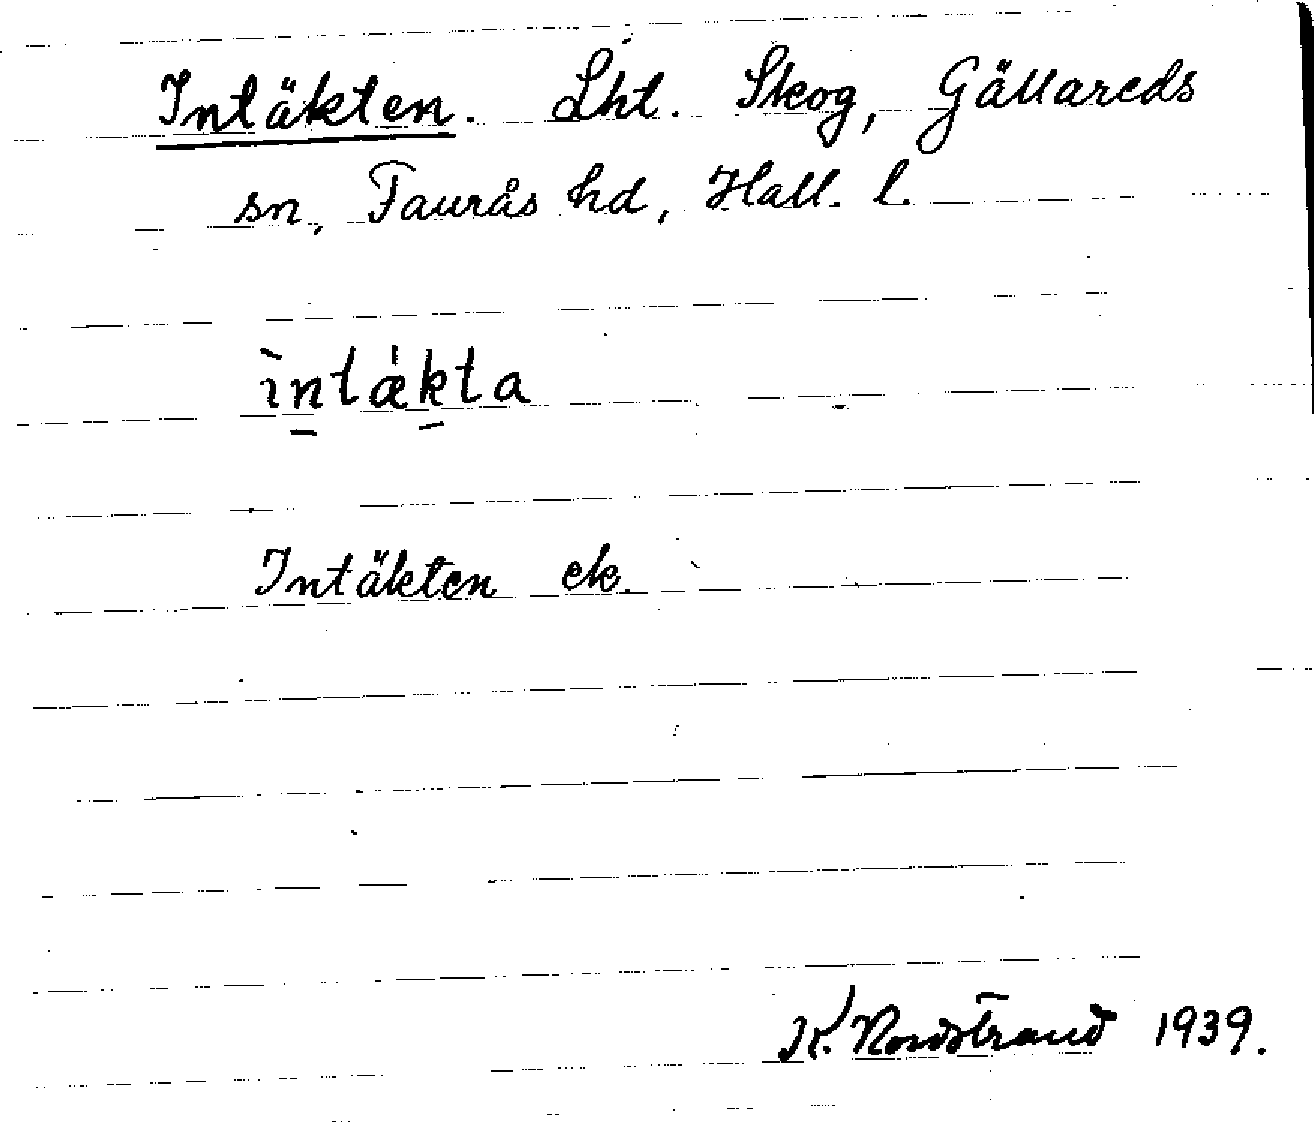 Intäkten. Lht. Skog, Gällareds
sn, Faurås hd, Hall. l.
ìntä́kta
Intäkten ek.
K. Nordstrand 1939.